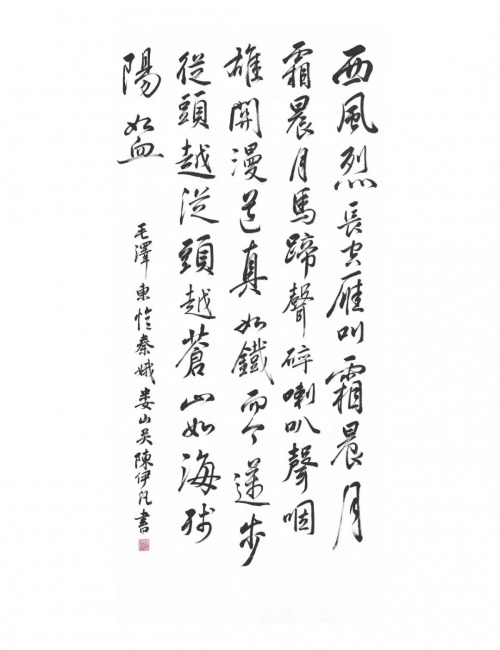 西風烈長空雁叫霜晨月
霜晨月馬蹄聲碎喇叭聲咽
雄関漫道真如鐵而今邁步
從頭越從頭越蒼山如海残
陽如血
毛澤東憶秦娥娄山关陳伊凡書